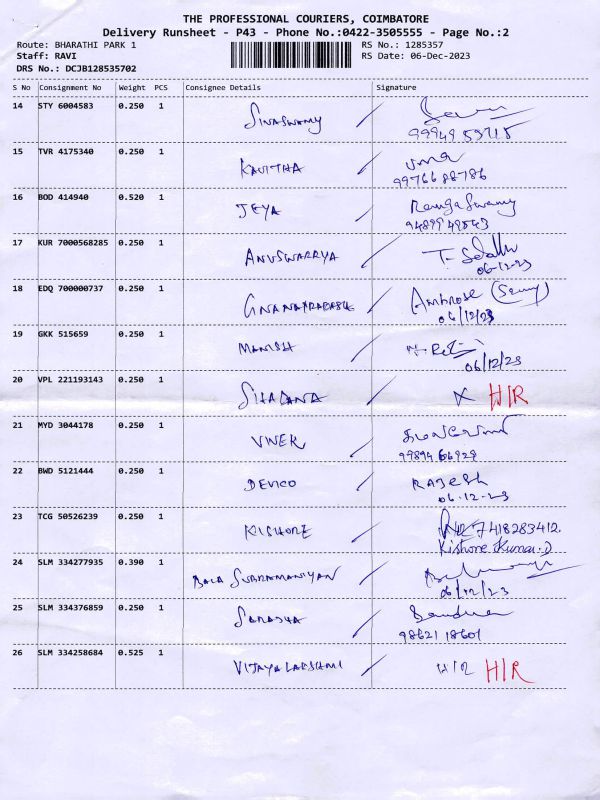 THE PROFESSIONAL COURIERS, COIMBATORE
Delivery Runsheet - P43 - Phone No.:0422-3505555 - Page No.:2
Route: BHARATHI PARK 1 RS No.: 1285357
Staff: RAVI RS Date: 06-Dec-2023
DRS No.: DCJB128535702
S No Consignment No Weight PCS Consignee Details Signature
14 STY 6004583 0.250 1 SIVASWAMY
15 TVR 4175340 0.250 1 KAVITHA uma
9976688786
16 BOD 414940 0.520 1 JEYA RangaSwamy
9489949543
17 KUR 7000568285 0.250 1 ANUSWARRYA
06-12-23
18 EDQ 700000737 0.250 1 GNANAPRAKASH Ambrose
06/12/23
19 GKK 515659 0.250 1 MANISH
06/12/23
20 VPL 221193143 0.250 1 SHABANA X H/R
21 MYD 3044178 0.250 1 VIVEK
9989466928
22 BWD 5121444 0.250 1 DEVICO RAJESH
06-12-23
23 TCG 50526239 0.250 1 KISHORE 7418283412.
Kishore Kumar.D
24 SLM 334277935 0.390 1 BALA SUBRAMANIYAN
06/12/23
25 SLM 334376859 0.250 1
98621 18601
26 SLM 334258684 0.525 1 VIJAYALAKSHMI H/R H/R